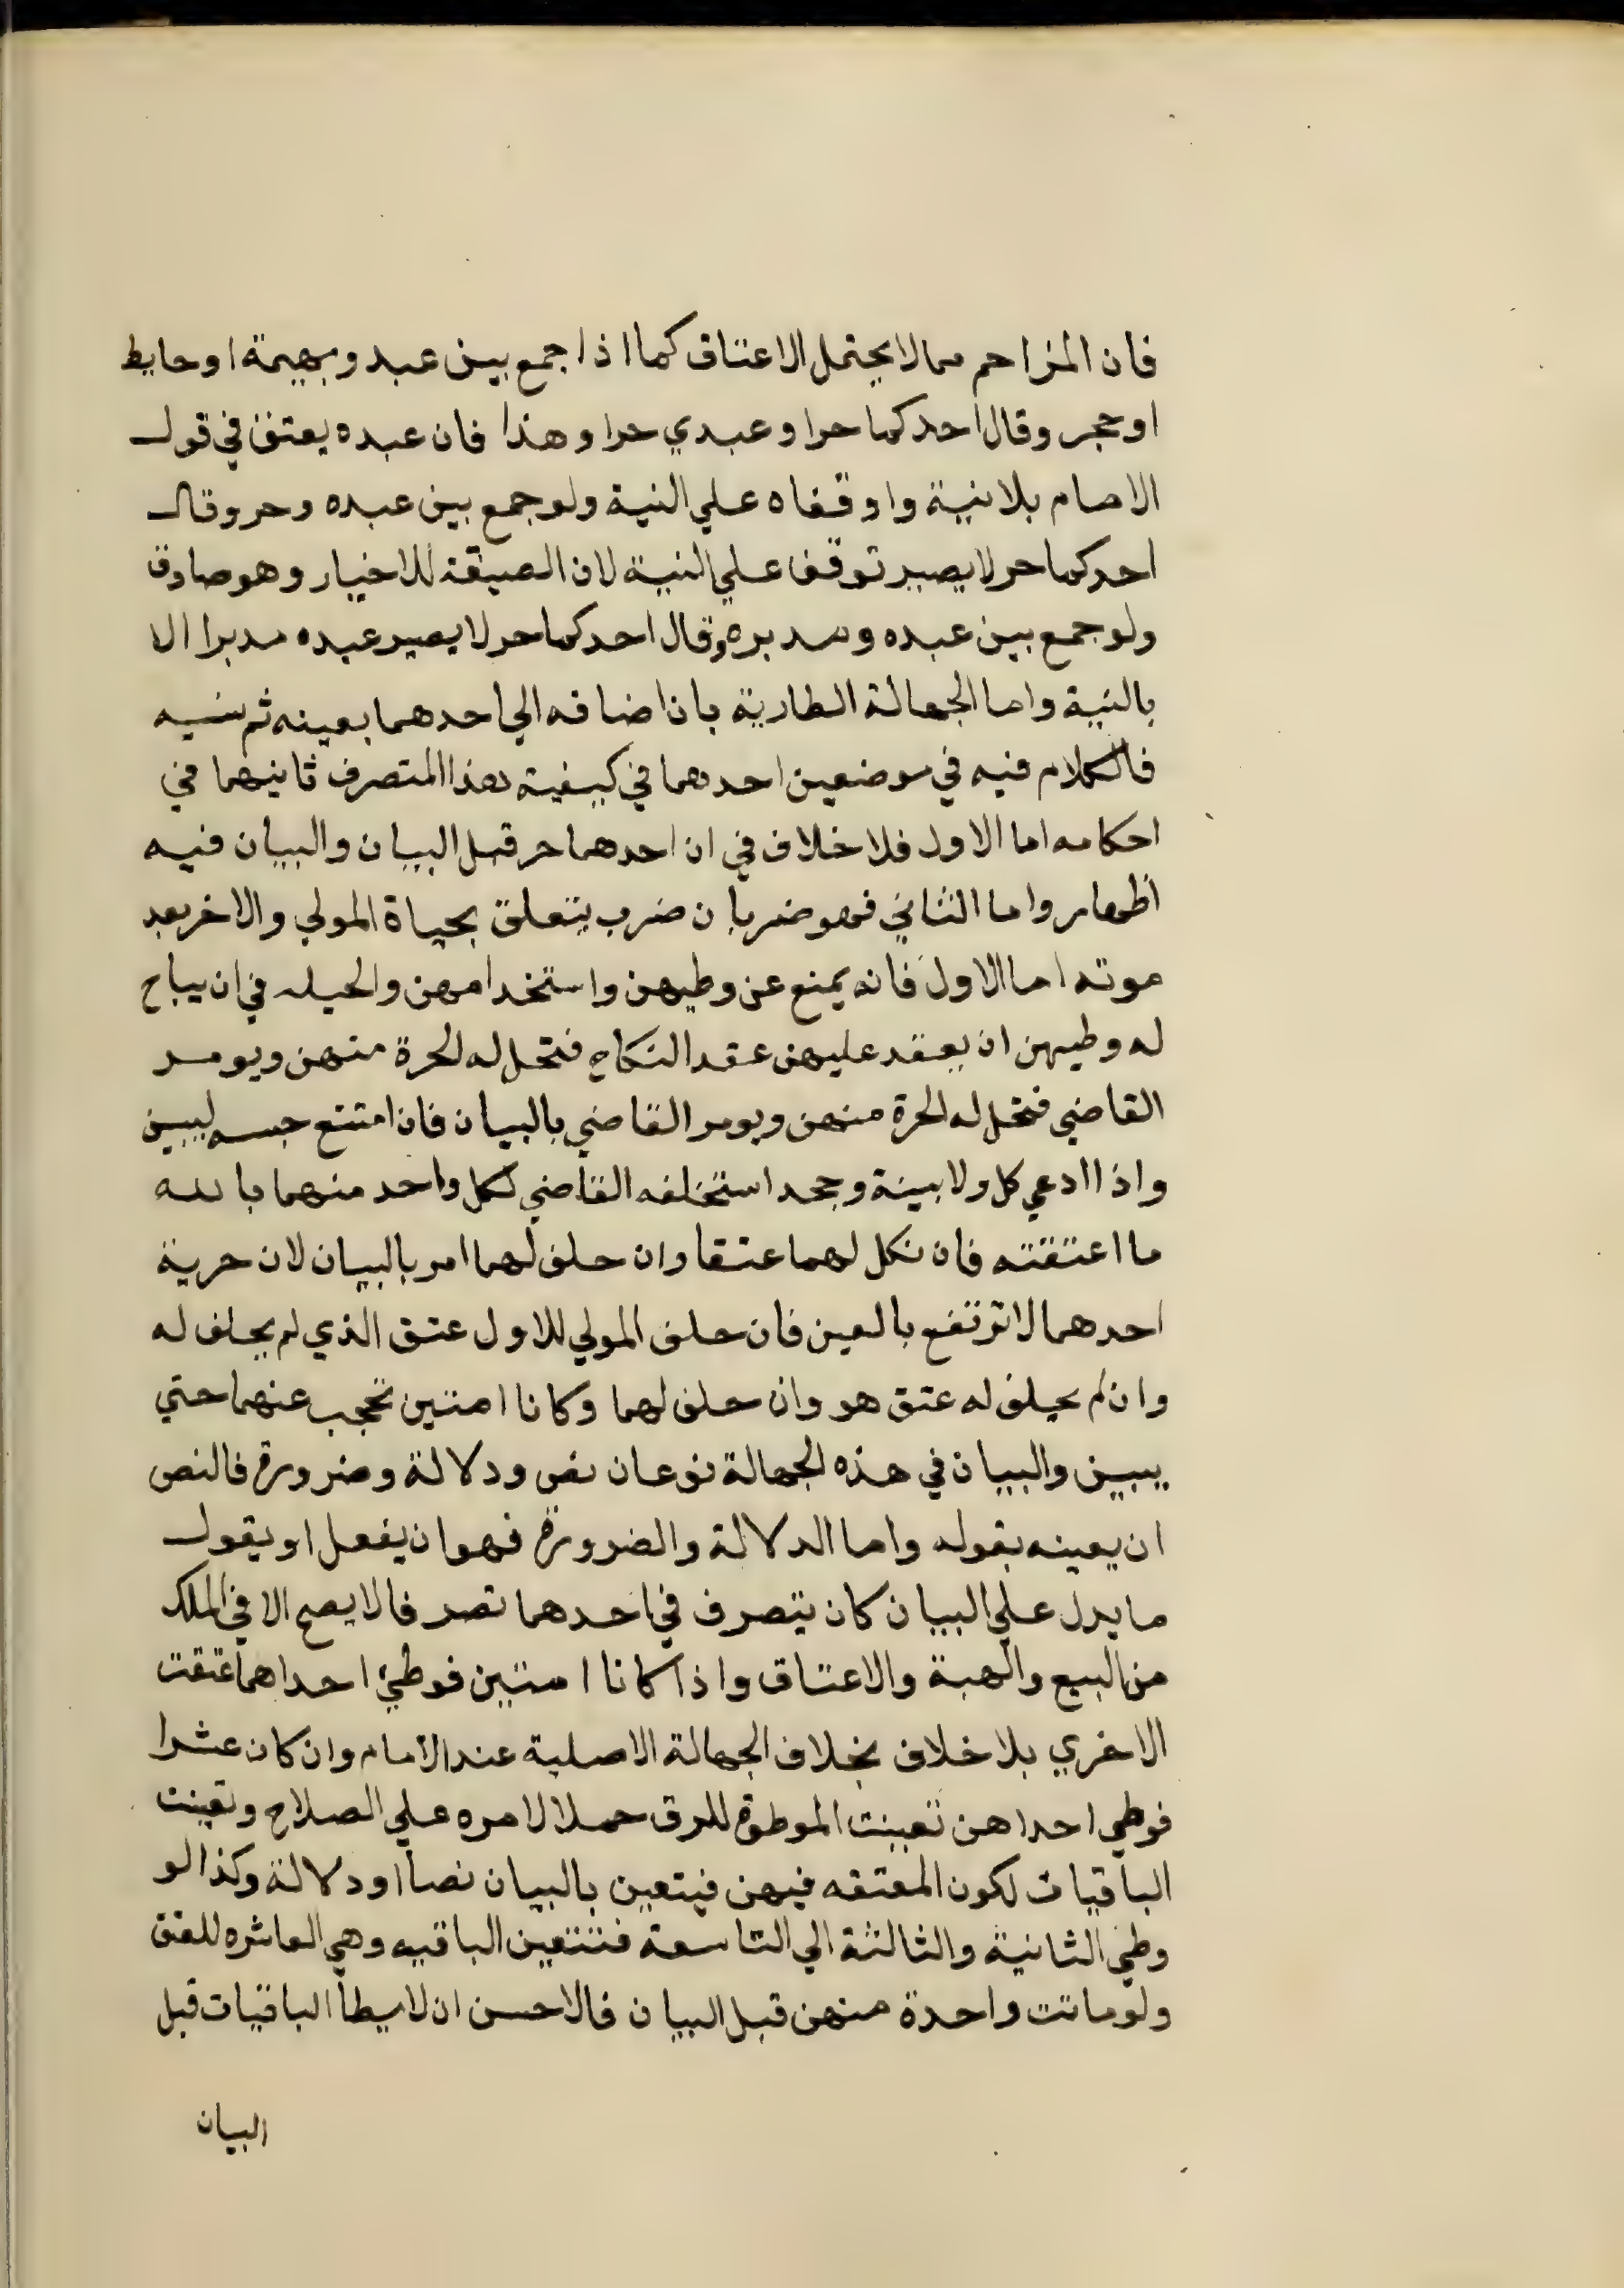 فان المزاحم مما لا يحتمل الاعتاق كما اذا جمع بين عبد وبهيمة او حايط
او حجر وقال احدكما حر او عبدي حر او هذا فان عبده يعتق في قول
الامام بلا نية واوقفاه علي النية ولو جمع بين عبده وحر وقال
احدكما حر لا يصير توقف علي النية لان الصيغة للاخبار وهو صادق
ولو جمع بين عبده ومدبره وقال احدكما حر لا يصير عبده مدبرا الا
بالنية واما الجهالة الطارية بان اضافه الي احدهما بعينه ثم نسيه
فالكلام فيه في موضعين احدهما في كيفية هذا المتصرف ثانيهما في
احكامه اما الاول فلا خلاف في ان احدهما حر قبل البيان والبيان فيه
اظهار واما الثاني فهو ضربان ضرب يتعلق بحياة المولي والاخر بعد
موته اما الاول فانه يمنع عن وطيهن واستخدامهن والحيله في ان يباح
له وطيهن ان يعقد عليهن عقد النكاح فتحل له الحرة منهن ويومر
القاضي فتحل له الحرة منهن ويومر القاضي بالبيان فان امتنع حبسه ليبين
واذا ادعي كل ولا بينة وجحد استخلفه القاضي لكل واحد منهما بالله
ما اعتقته فان نكل لهما عتقا وان حلف لهما امر بالبيان لان حرية
احدهما لا ترتفع بالعين فان حلف المولي للاول عتق الذي لم يحلف له
وان لم يحلف له عتق هو وان حلف لهما وكانا امتين تحجب عنهما حتي
يبين والبيان في هذه الجهالة نوعان نص ودلالة وضرورة فالنص
ان يعينه بقوله واما الدلالة والضرورة فهو ان يفعل او يقول
ما يدل علي البيان كان يتصرف في احدهما تصرفا لا يصح الا في الملك
من البيع والهبة والاعتاق واذا كانا امتين فوطئ احداهما عتقت
الاخري بلا خلاف بخلاف الجهالة الاصلية عند الامام وان كان عشرا
فوطي احداهن تعينت الموطوة للرق حملا لامره علي الصلاح وتعينت
الباقيات لكون المعتقه فيهن فيتعين بالبيان نصا او دلالة وكذا لو
وطي الثانية والثالثة الي التاسعة فتتعين الباقيه وهي العاشره للعتق
ولو ماتت واحدة منهن قبل البيان فالاحسن ان لا يطأ الباقيات قبل
البيان